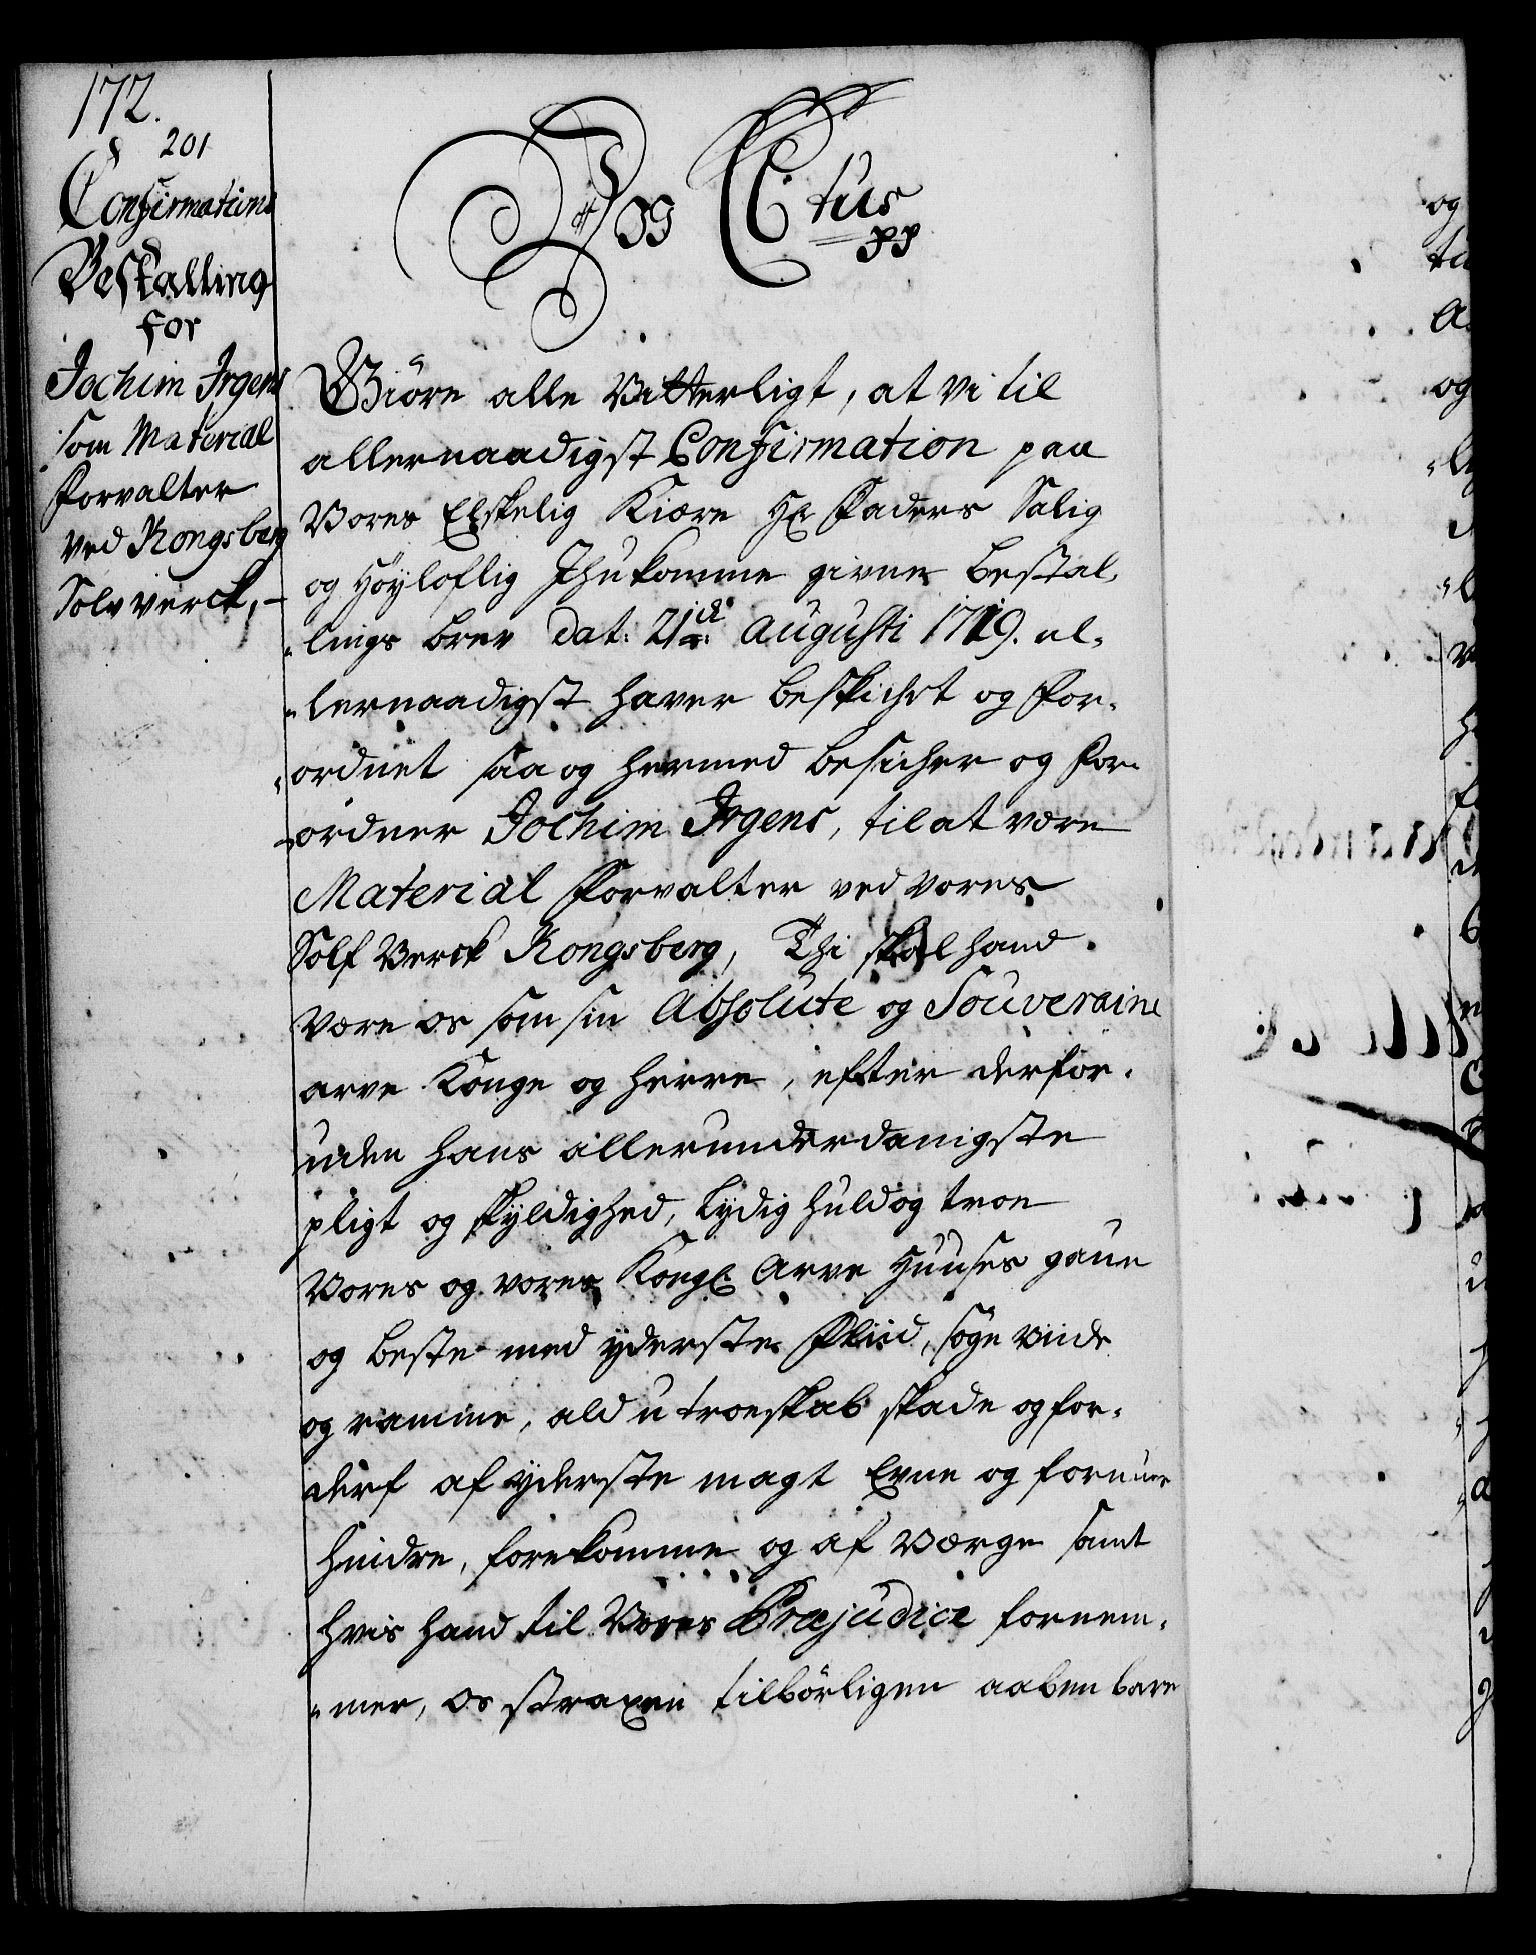 172.
201
Confirmations
Bestalling
for
Jochim Irgens
som Material
Forvalter
ved Kongsberg
Sølvverck,
Vog C: 6tus
pp
Giøre alle Vitterligt, at vi til
allernaadigst Confirmation paa
Vores Elskelig Kiære Hr Faders Salig
og Høyloflig Ihukomme givne Bestal-
lings brev dat: 21de Augusti 1719. al-
lernaadigst haver beskichet og for-
ordnet saa og hermed beskicher og for-
ordner Jochim Irgens, til at være
Material Forvalter ved vores
Sølf Verck Kongsberg, Thi skal hand
være os som sin Absolute og Souveraine
arve Konge og Herre, efter derfor-
uden hans allerunderdanigste
pligt og skyldighed, lydig huld og troe
Vores og vores Kongl. Arve Huuses gavn
og beste med yderste Fliid, søge viide
og ramme, ald utroeskab skade og for-
derf af yderste magt Evne og formue
hindre, forekomme og af værge samt
hvis hand til Vores Præjudice fornem-
mer, os straxen tilbørligen aabenbare